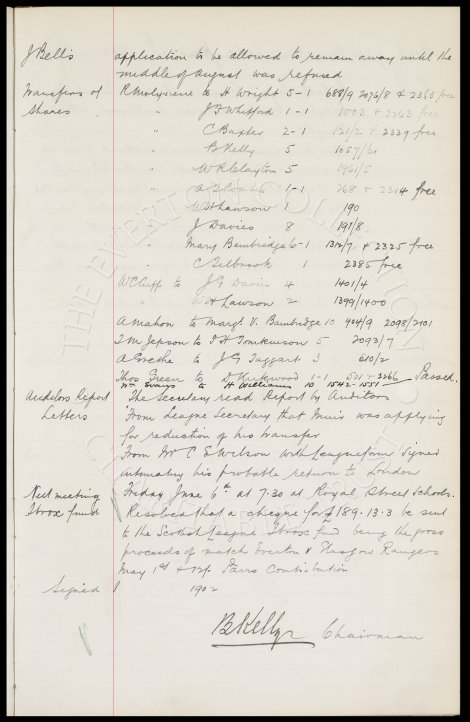 J Bells application to be allowed to remain away until the
middle of August was refused
Transfers of R Molyneux to H Wright 5-1 688/9 2076/8 & 2363 free
Shares " J D Whitford 1-1 1003 & 2263 free
" C Baxter 2-1 121/2 & 2339 free
" B Kelly 5 1057/61
" W R Clayton 5 1961/5
" 1-1 268 & 2314 free
" W H Lawson 1 190
" J Davies 8 191/8
" Mary Bainbridge 6-1 1312/7 & 2325 free
" C Silbrook 1 2385 free
W C Cuff to J G Davies 4 1401/4
" W H Lawson 2 1399/1400
A Mahon to Margt V. Bainbridge 10 904/9 2098/2101
J M Jepson to J H Tomkinson 5 2093/7
A Goethe to J G Taggart 3 610/2
Thos Green to D Kirkwood 1-1 501 & 2266 Passed.
Wm Evans to H Williams 10 1542-1551
Auditors Report The Secretary read Report by Auditors
Letters From League Secretary that Muir was applying
for reduction of his transfer
From Mr C E Wilson with League form signed
intimating his probable return to London
Next meeting Friday June 6th at 7.30 at Royal Street Schools.
Ibrox fund Resolved that a cheque for £189.13.3 be sent
to the Scottish League Ibrox fund being the gross
proceeds of match Everton v Glasgow Rangers
May 1st & 12/- Contribution
Signed 1902
B Kelly Chairman
THE EVERTON COLLECTION
CHARITABLE TRUST